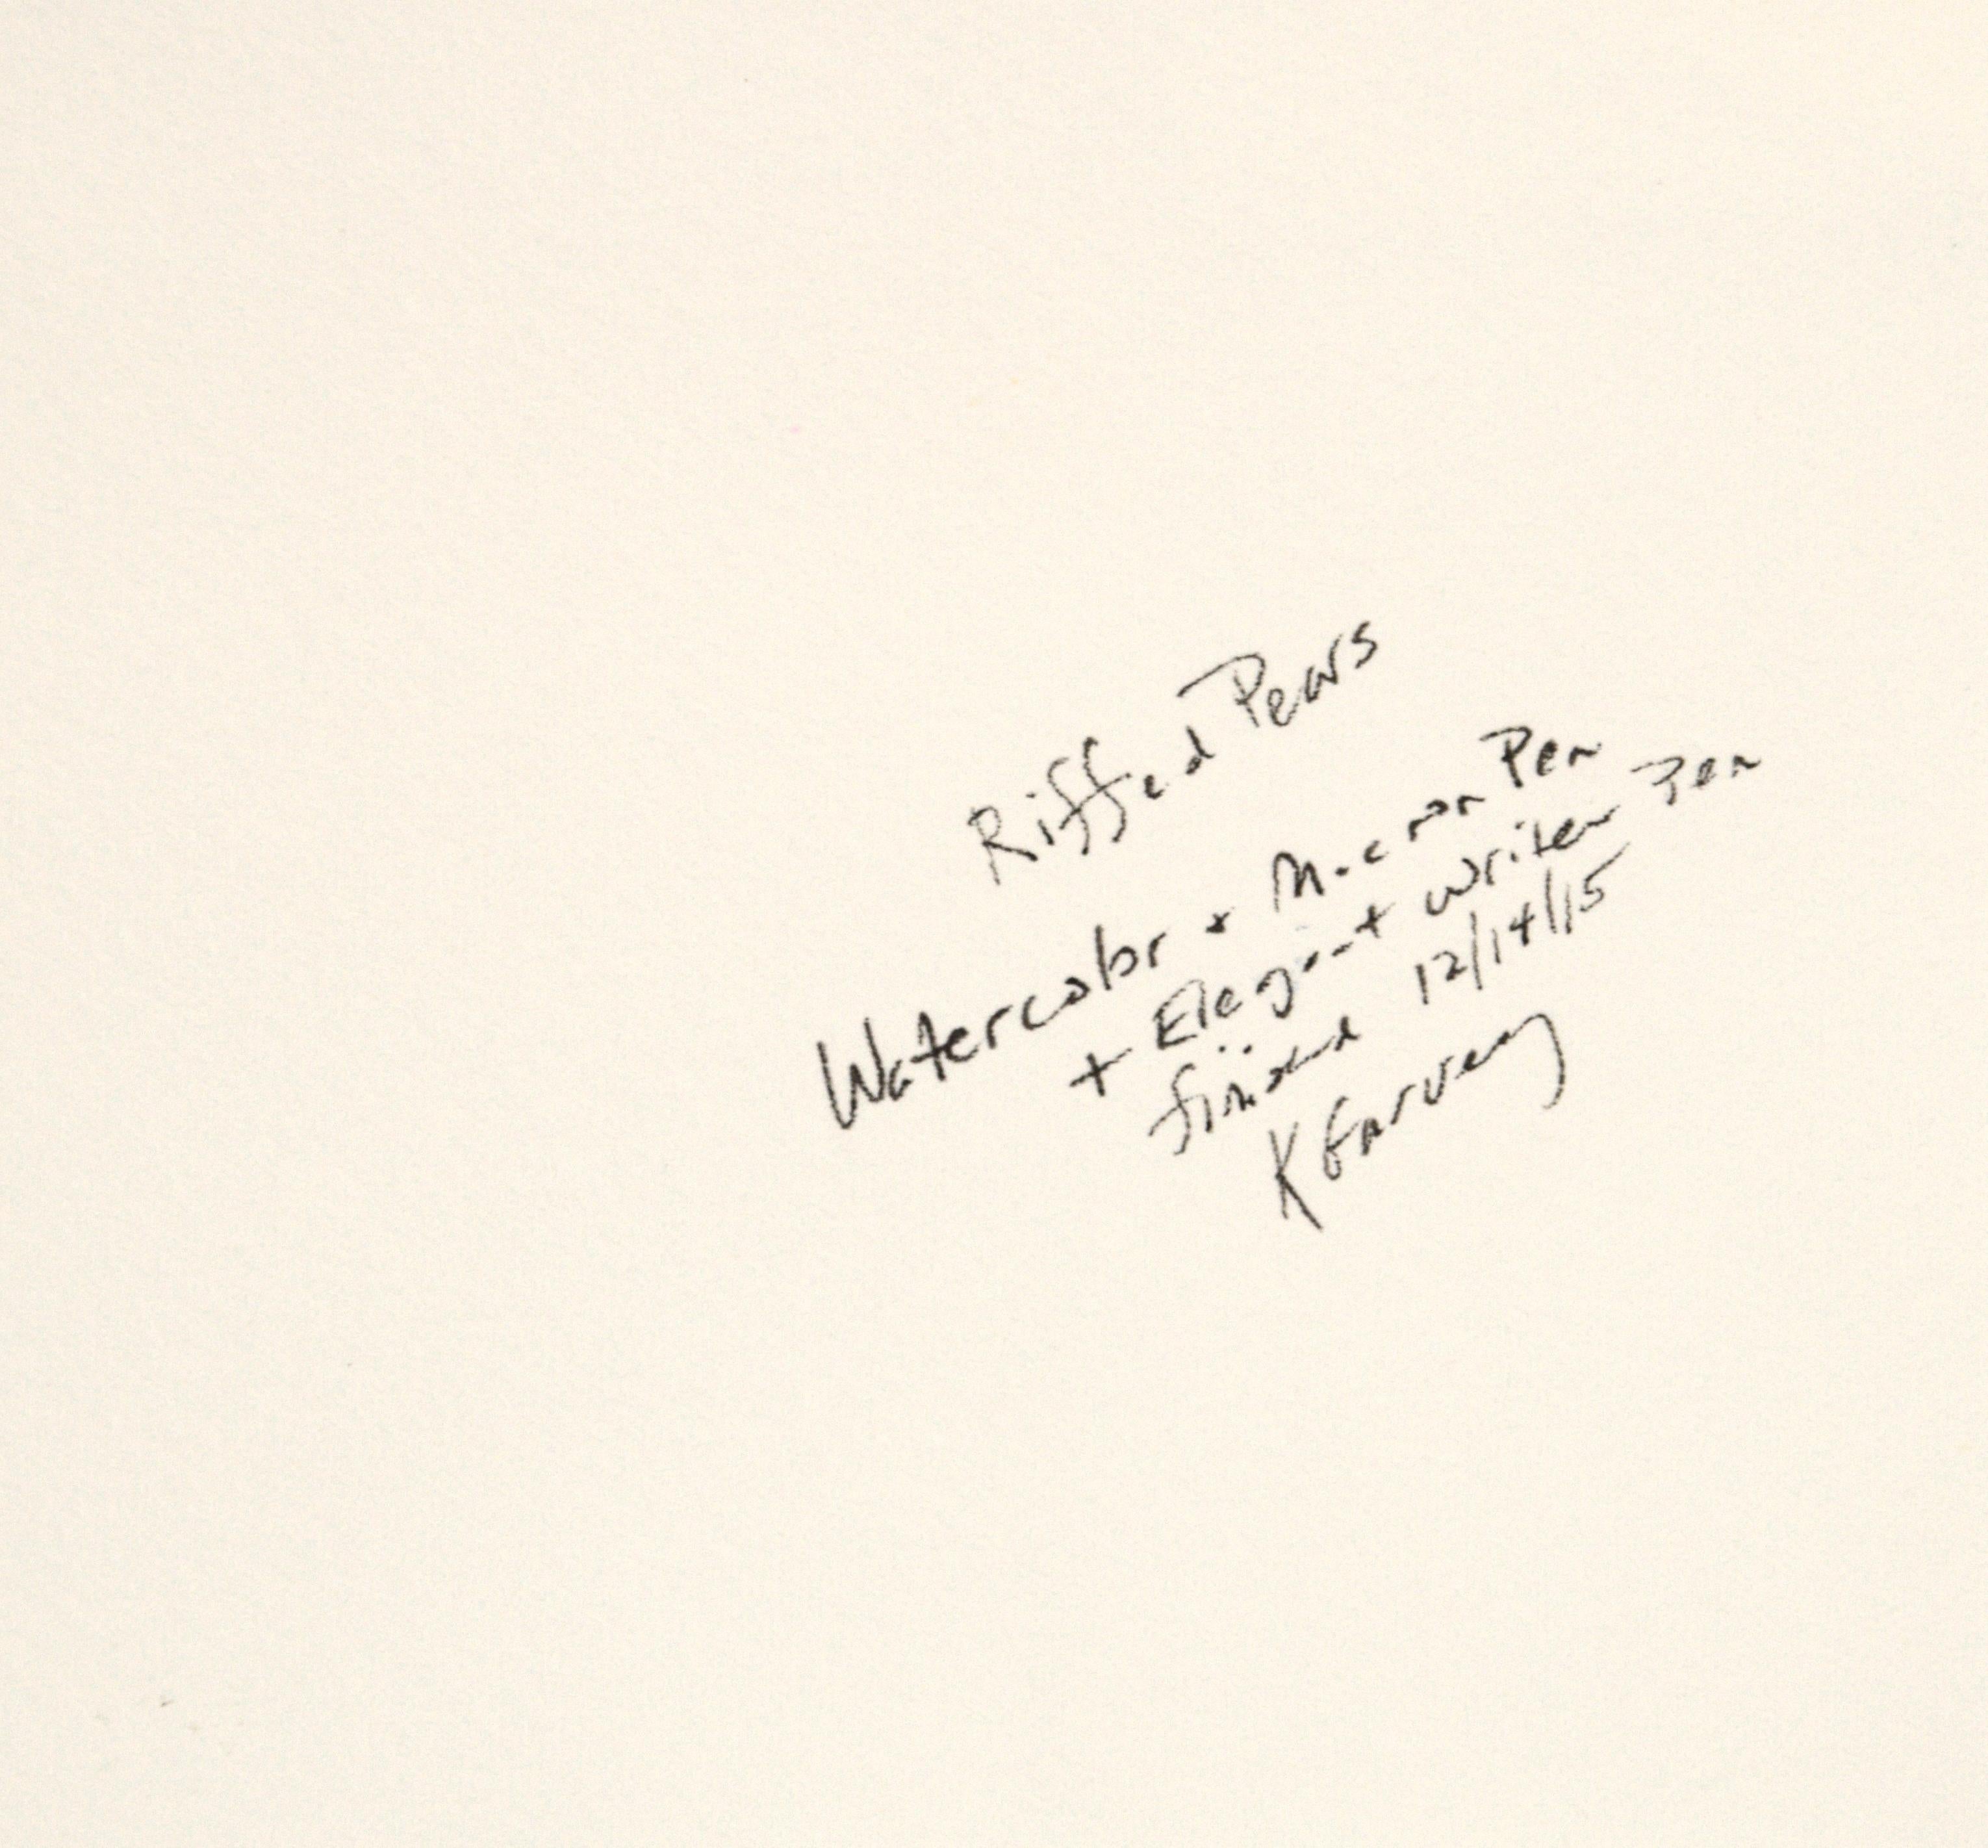 Riffed Pears
Watercolor + Micron Pen
+ Elegant Writer Pen
finished 12/14/15
K Garvey